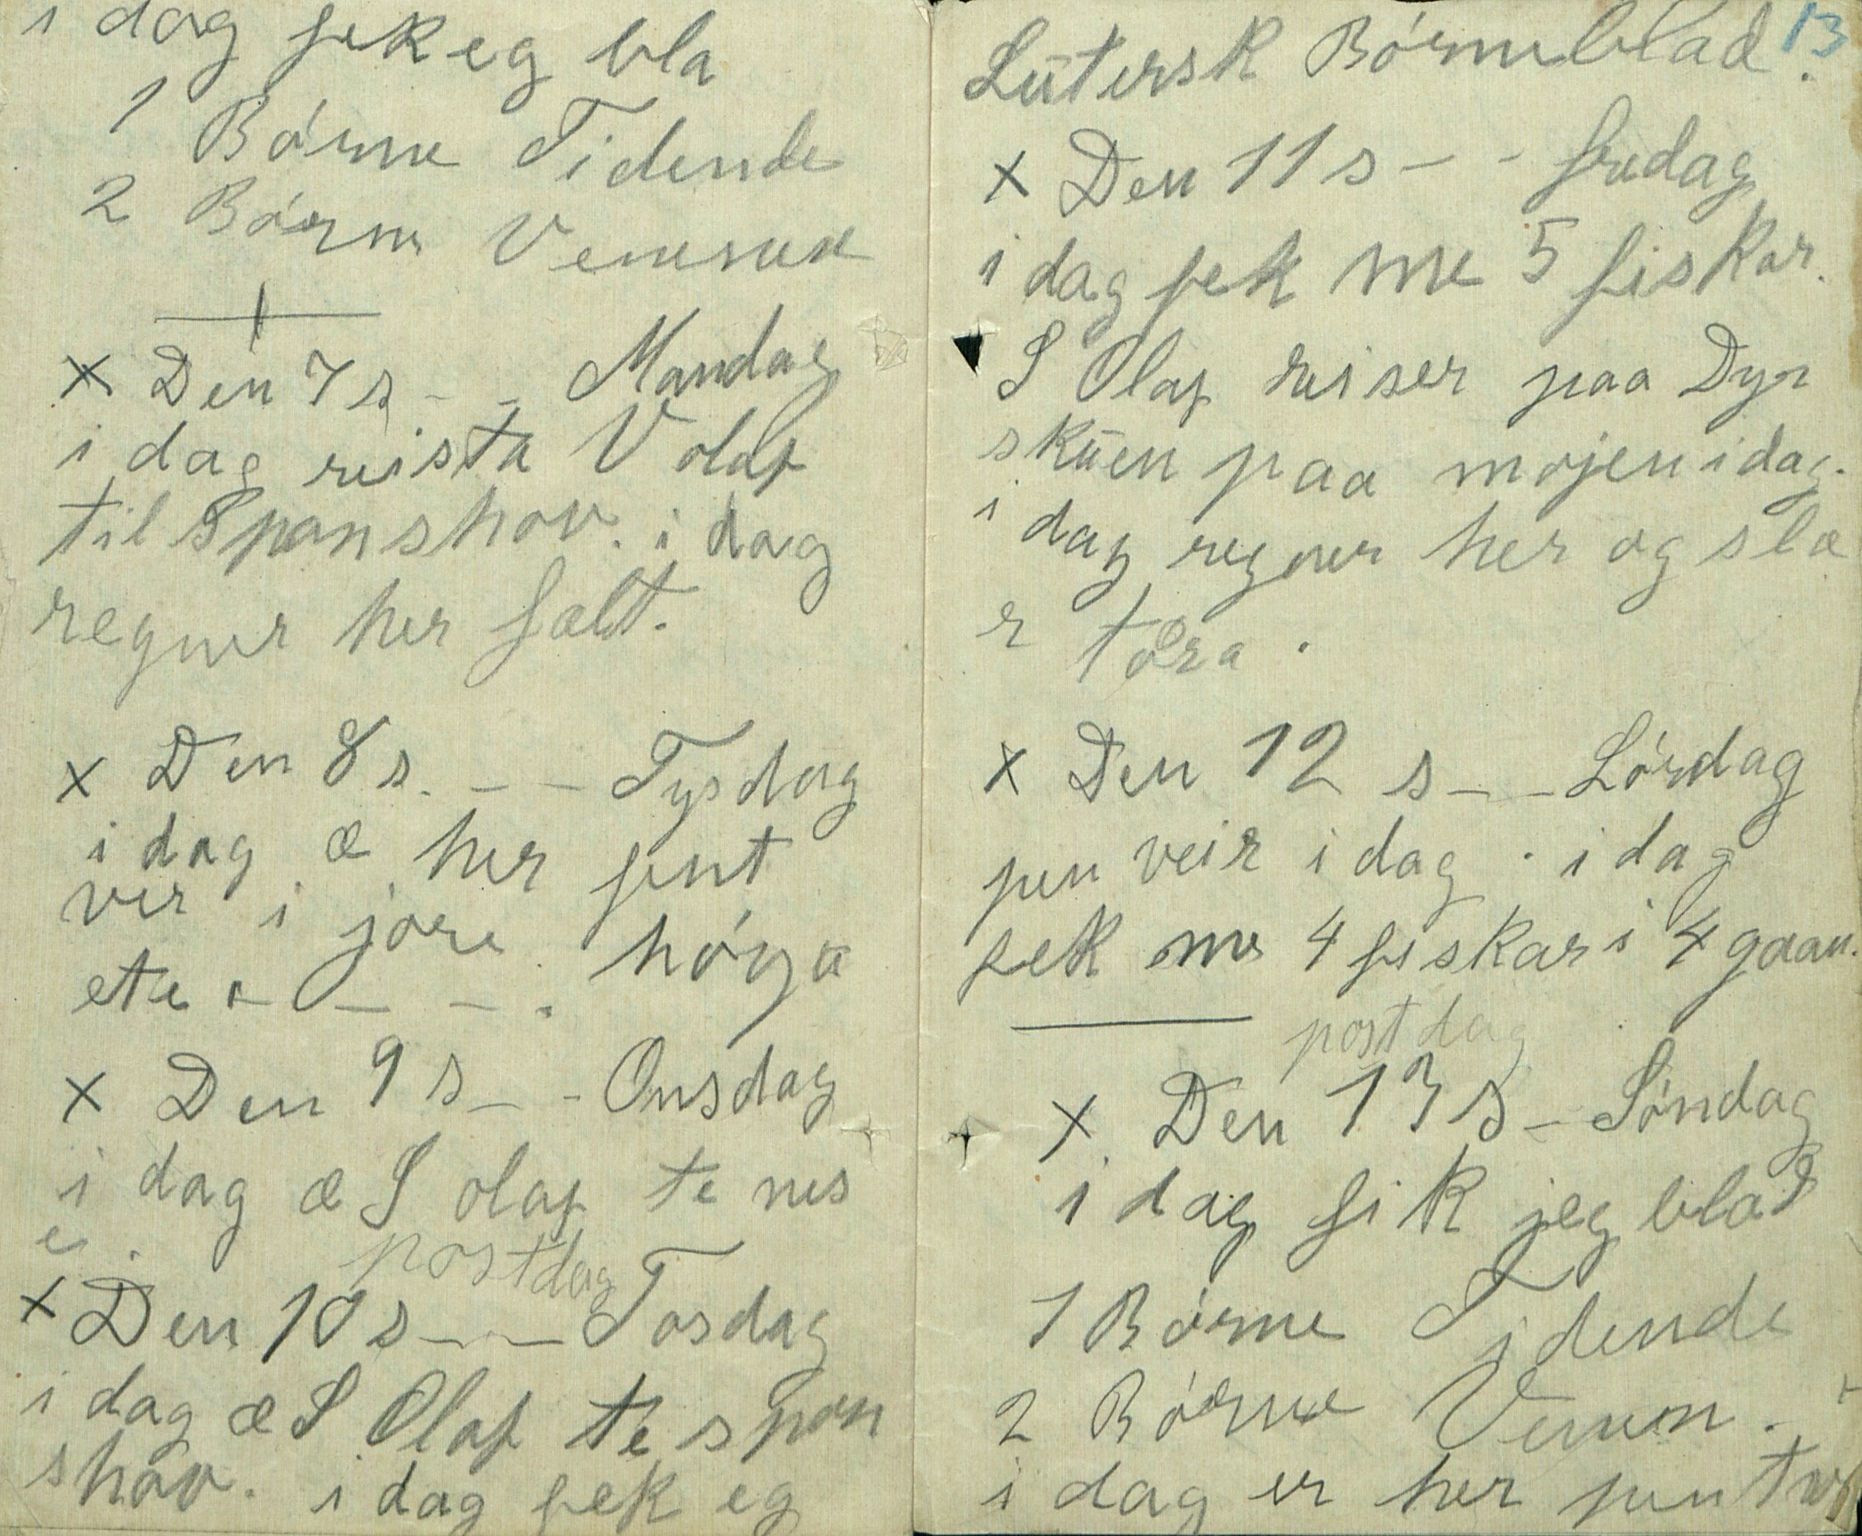 i dag fek eg bla
1 Börne Tidende
2 Börne
X Den 7 s - - Mandag
i dag reista V olaf
til Spanshov. i dag
regner her fælt.
X Den 8 s. - - Tysdag
i dag æ her pent
ver i jore. höya
ete - - - .
X Den 9 s - - Onsdag
i dag æ S olaf te nes
e.
postdag
X Den 10 s - - Tosdag
i dag æ S Olaf te span
shov. i dag fek eg
13
Lūtersk Börneblad.
X Den 11 s - - fredag
i dag fek me 5 fiskar.
S Olaf reiser paa Dyr
skūen paa mojen idag.
i dag regner her og slæ
r tora.
X Den 12 s - - Lördag
pen veir i dag. i dag
fek me 4 fiskar i 4 gaan.
postdag
X. Den 13 s - Söndag
i dag fik jeg blad
1 Börne Tidende
2 Börne Vennen.
i dag er her pent